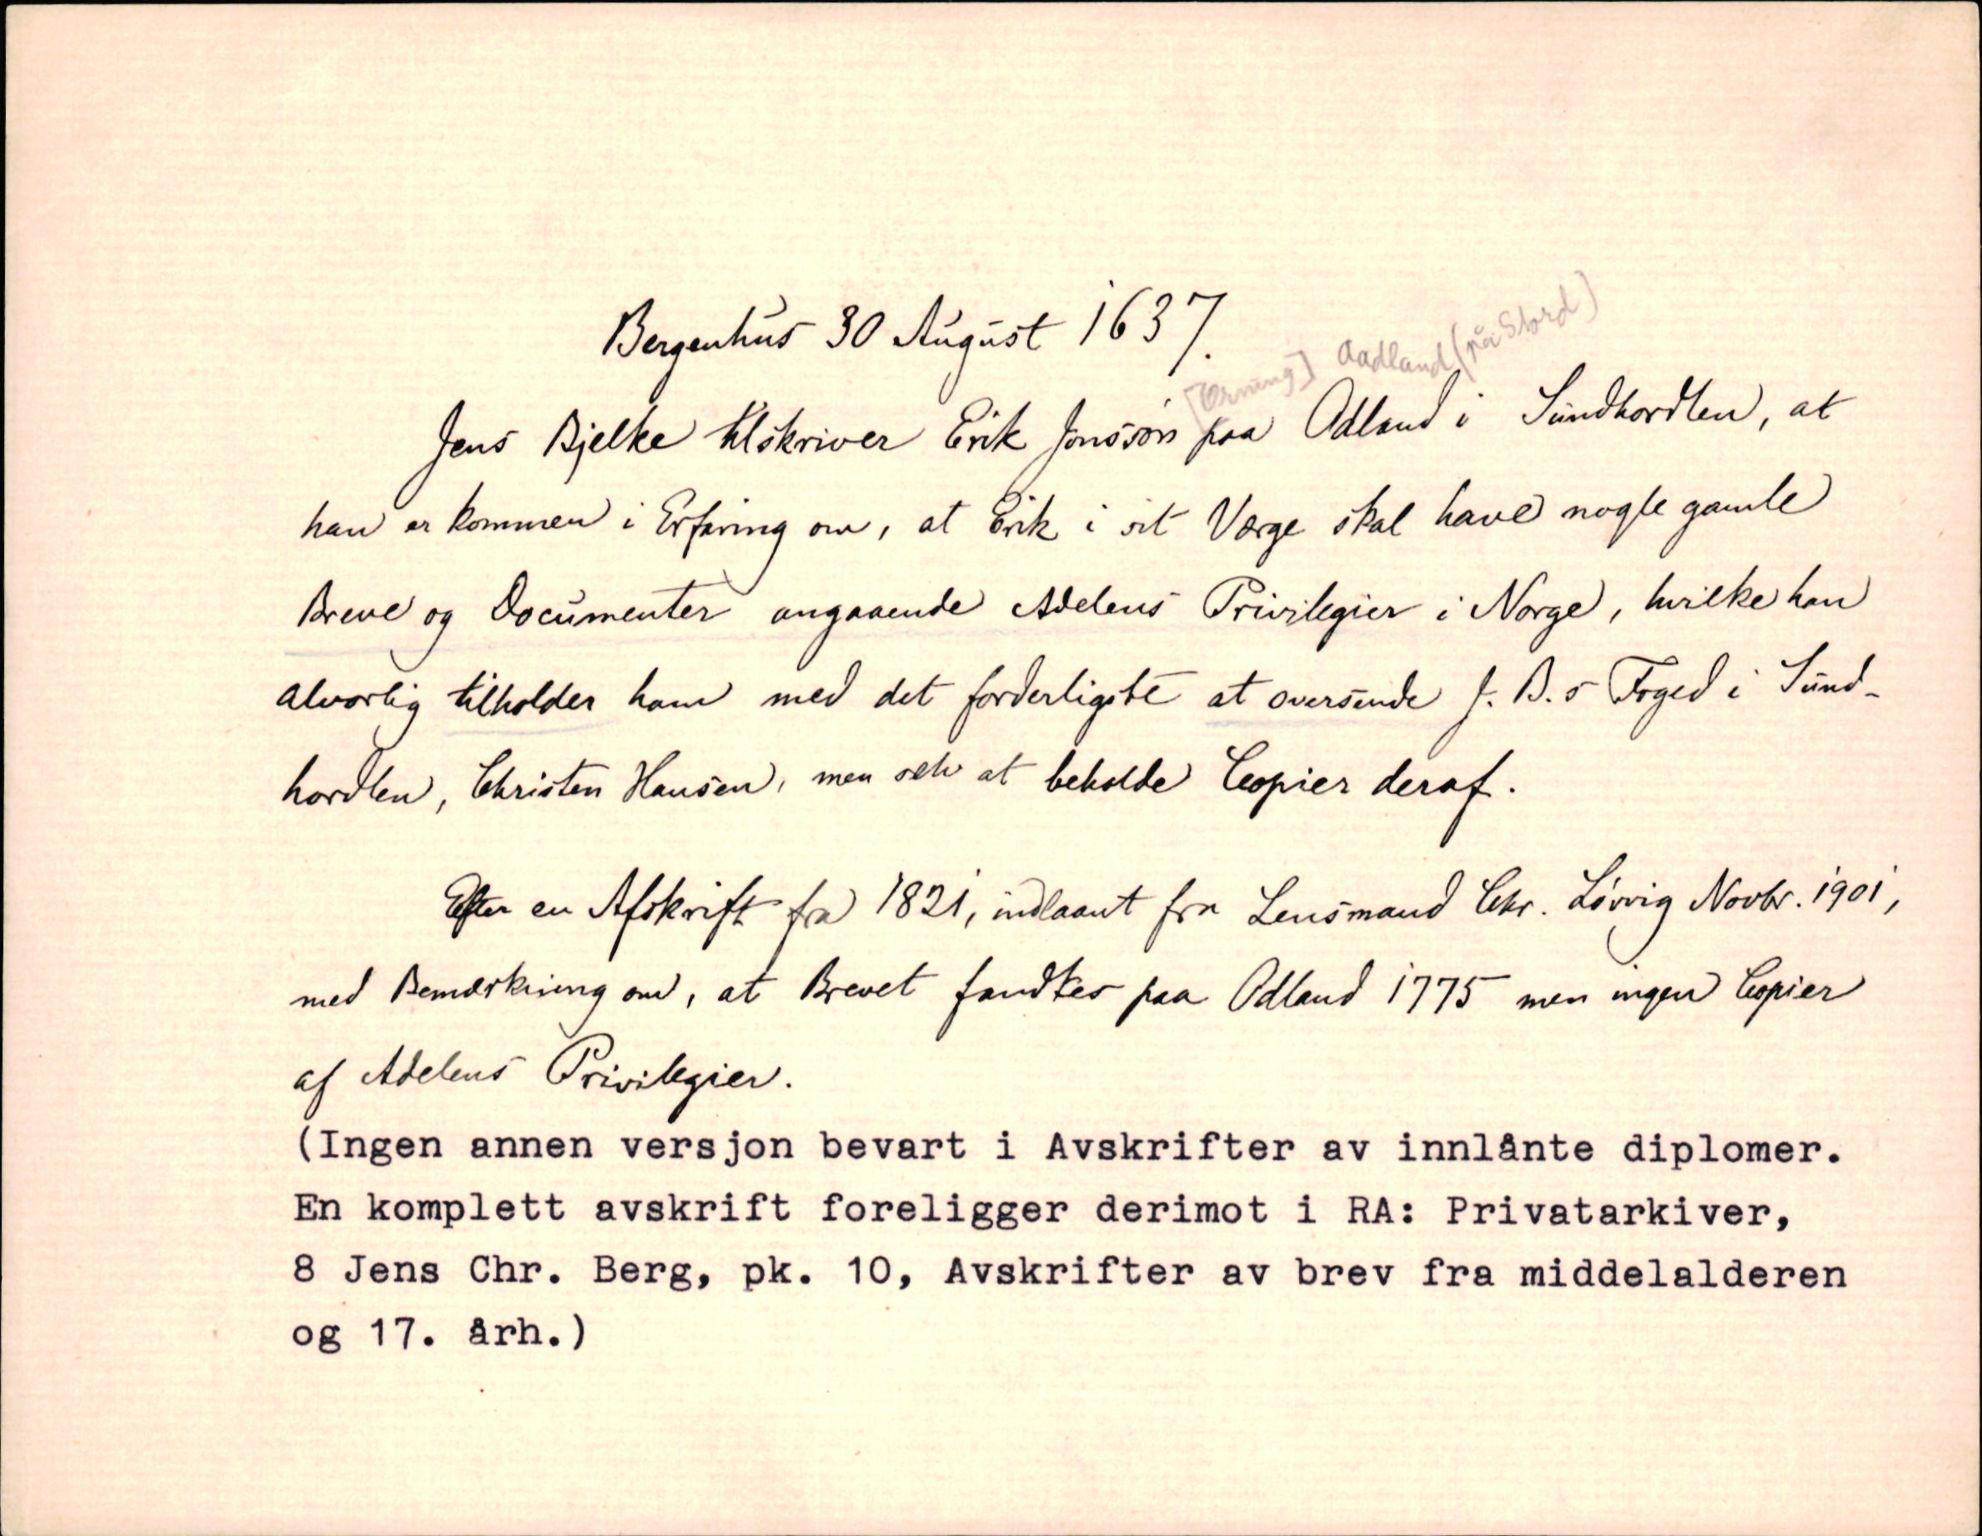 Bergenhus 30 August 1637.
[Orning] Aadland (på Stord)
Jens Bjelke tilskriver Erik Jonssøn paa Adland i Sundhordlen, at
han er kommen i Erfaring om, at Erik i sit Værge skal have nogle gamle
Breve og Documenter angaaende Adelens Privilegier i Norge, hvilke han
alvorlig tilholder ham med det forderligste at oversende J. B.s Foged i Sund-
hordlen, Christen Hansen, men selv at beholde Copier deraf.
Efter en Afskrift fra 1821, indlaant fra Lensmand Chr. Løvvig Novbr. 1901,
med Bemærkning om, at Brevet fandtes paa Adland 1775 men ingen Copier
af Adelens Privilegier.
(Ingen annen versjon bevart i Avskrifter av innlånte diplomer.
En komplett avskrift foreligger derimot i RA: Privatarkiver,
8 Jens Chr. Berg, pk. 10, Avskrifter av brev fra middelalderen
og 17. årh.)